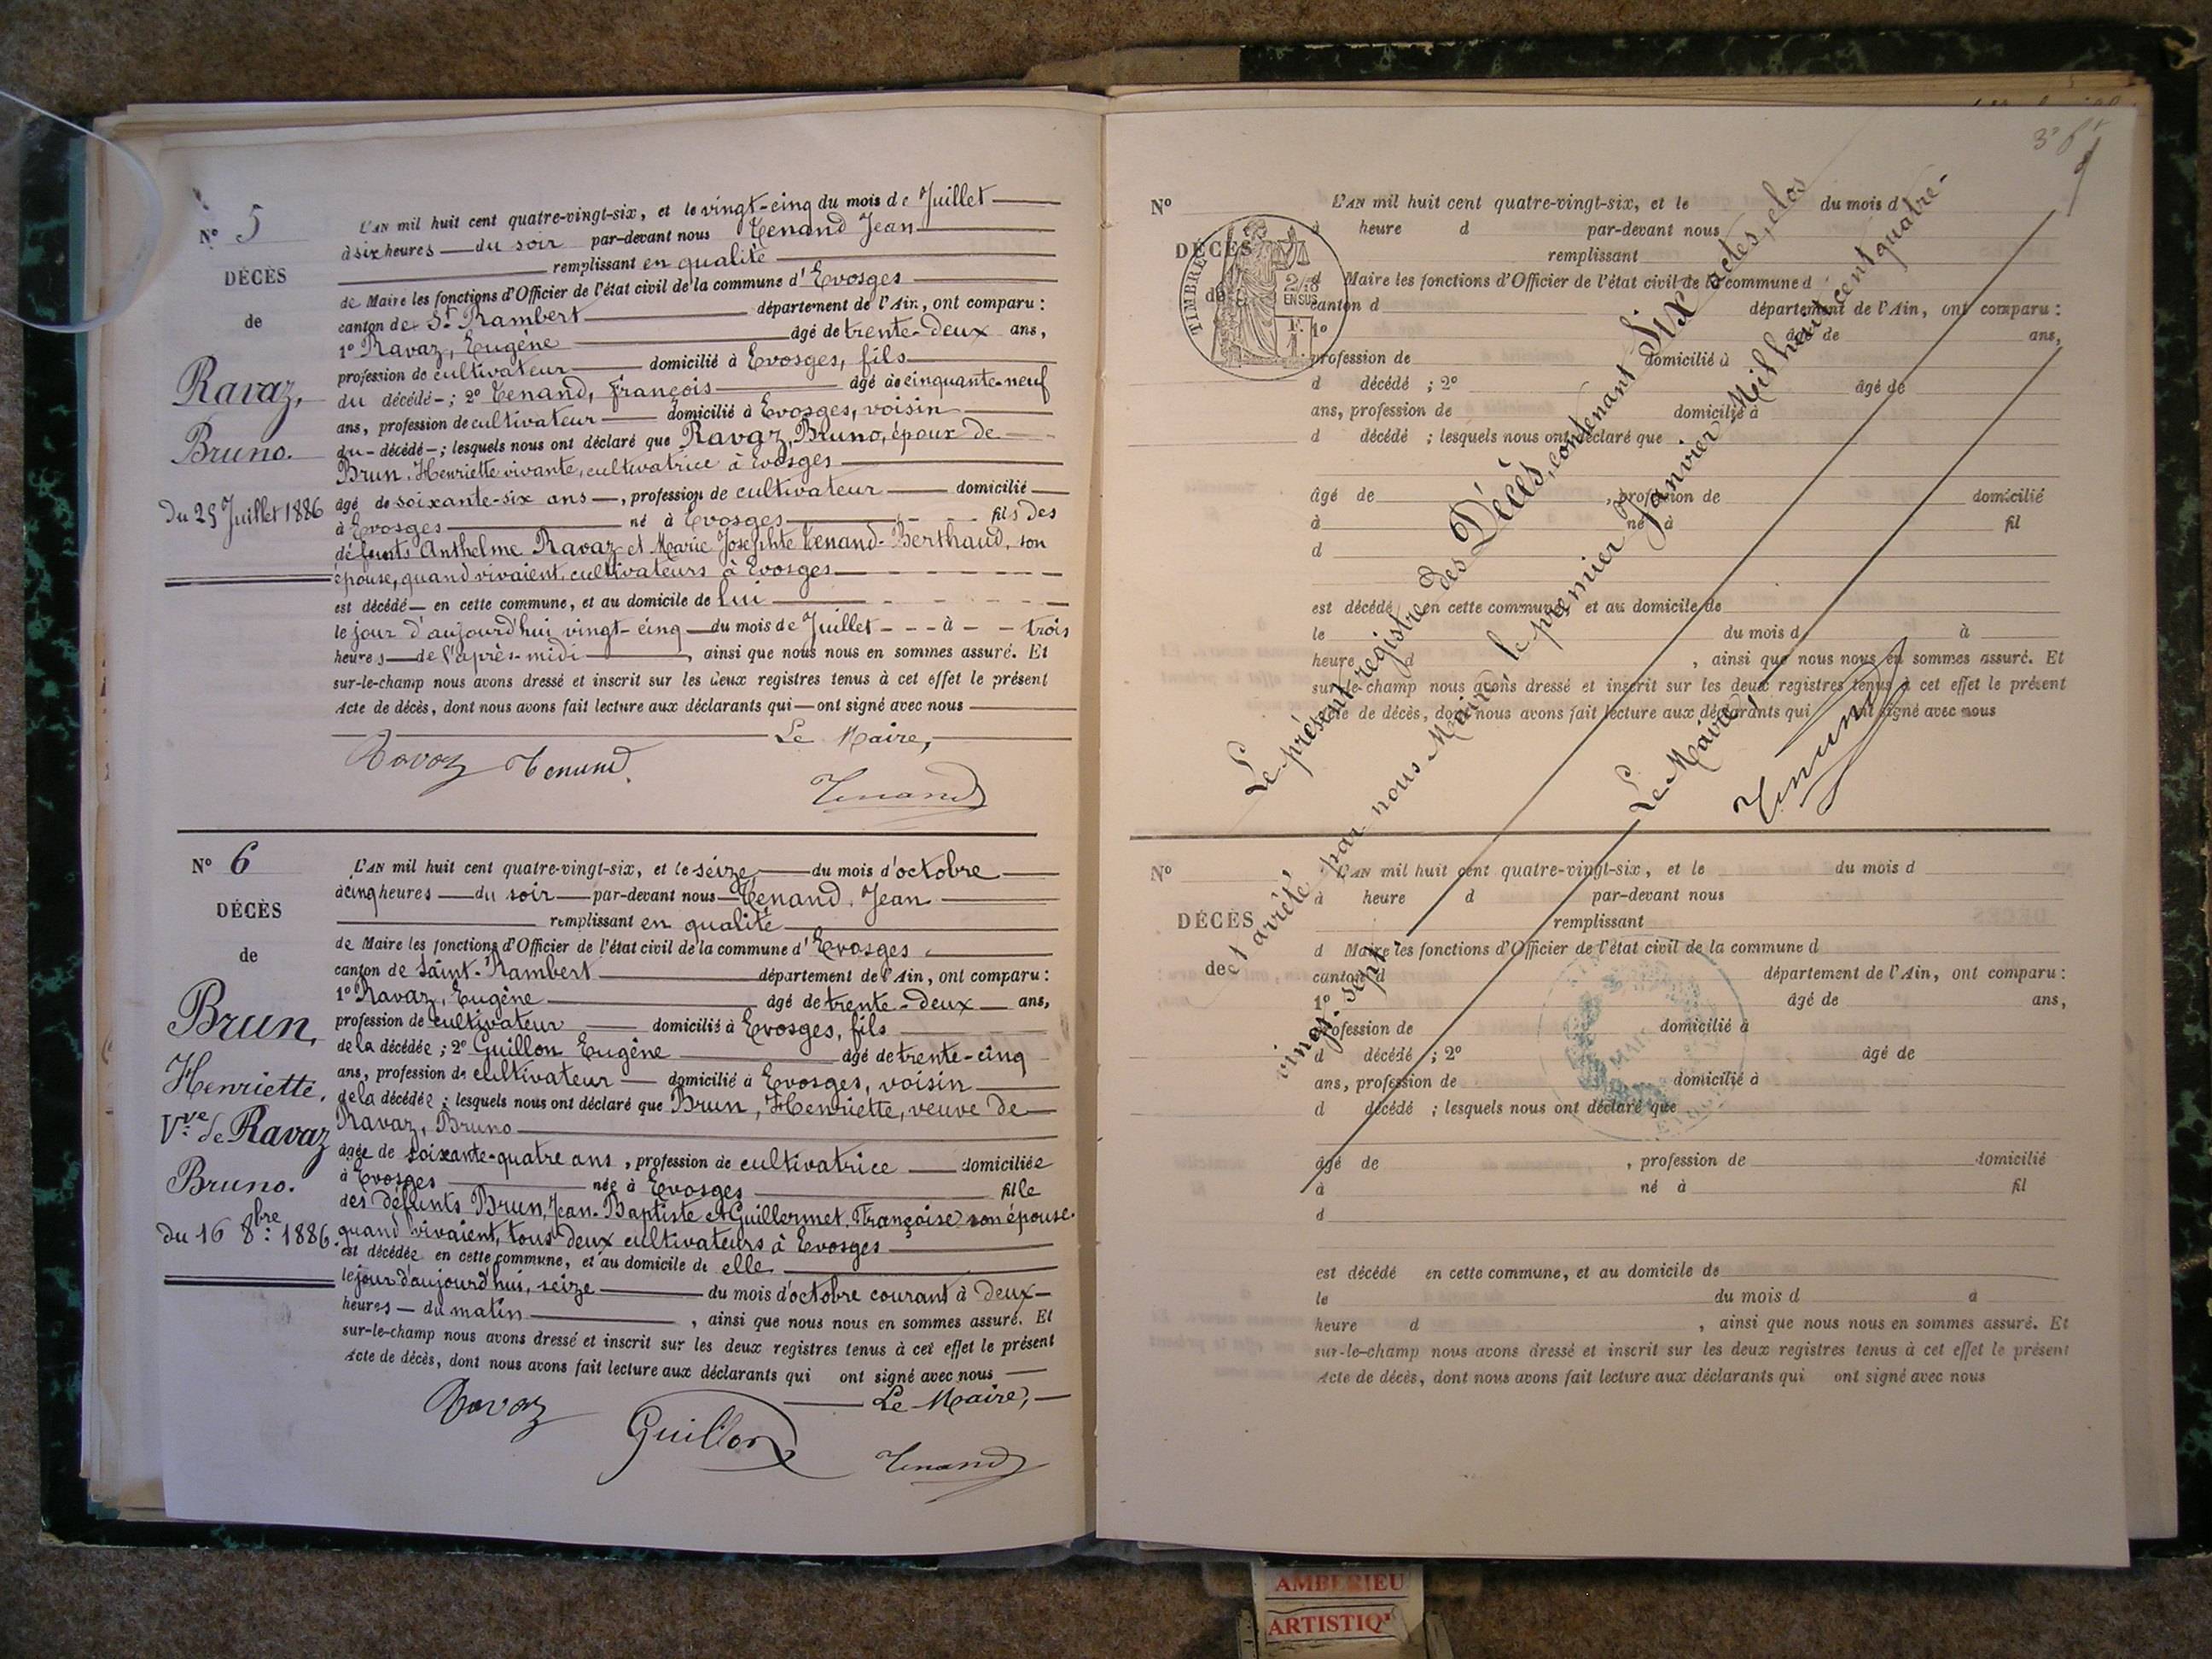 N° 5
DÉCÈS
de
Ravaz,
Bruno.
Du 25 Juillet 1886
L'AN mil huit cent quatre-vingt-six, et le vingt-cinq du mois de Juillet
à six heures du soir par-devant nous Tenand Jean
remplissant en qualité
de Maire les fonctions d'Officier de l'état civil de la commune d'Evosges
canton de St Rambert département de l'Ain, ont comparu :
1° Ravaz, Eugène âgé de trente-deux ans,
profession de cultivateur domicilié à Evosges, fils
du décédé ; 2° Tenand, François âgé de cinquante-neuf
ans, profession de cultivateur domicilié à Evosges, voisin
du décédé ; lesquels nous ont déclaré que Ravaz, Bruno, époux de
Brun, Henriette vivante, cultivatrice à Evosges
âgé de soixante-six ans, profession de cultivateur domicilié
à Evosges né à Evosges fils des
défunts Anthelme Ravaz et Marie Josephte Tenand-Berthaud, son
épouse, quand vivaient, cultivateurs à Evosges
est décédé en cette commune, et au domicile de lui
le jour d'aujourd'hui vingt-cinq du mois de Juillet à trois
heures de l'après-midi, ainsi que nous nous en sommes assuré. Et
sur-le-champ nous avons dressé et inscrit sur les deux registres tenus à cet effet le présent
Acte de décès, dont nous avons fait lecture aux déclarants qui ont signé avec nous
Le Maire,
Ravaz Tenand.
Tenand
N° 6
DÉCÈS
de
Brun,
Henriette,
Vve de Ravaz
Bruno.
du 16 8bre 1886.
L'AN mil huit cent quatre-vingt-six, et le seize du mois d'octobre
à cinq heures du soir par-devant nous Tenand, Jean
remplissant en qualité
de Maire les fonctions d'Officier de l'état civil de la commune d'Evosges
canton de Saint-Rambert département de l'Ain, ont comparu :
1° Ravaz, Eugène âgé de trente-deux ans,
profession de cultivateur domicilié à Evosges, fils
de la décédée ; 2° Guillon Eugène âgé de trente-cinq
ans, profession de cultivateur domicilié à Evosges, voisin
de la décédée ; lesquels nous ont déclaré que Brun, Henriette, veuve de
Ravaz, Bruno
âgée de soixante-quatre ans, profession de cultivatrice domiciliée
à Evosges née à Evosges fille
des défunts Brun, Jean-Baptiste et Guillermet, Françoise son épouse.
quand vivaient, tous deux cultivateurs à Evosges
est décédée en cette commune, et au domicile de elle
le jour d'aujourd'hui, seize du mois d'octobre courant à deux
heures du matin, ainsi que nous nous en sommes assuré. Et
sur-le-champ nous avons dressé et inscrit sur les deux registres tenus à cet effet le présent
Acte de décès, dont nous avons fait lecture aux déclarants qui ont signé avec nous
Le Maire,
Ravaz Guillon Tenand
N°
DÉCÈS
de
TIMBRE
2/10
EN SUS
L'AN mil huit cent quatre-vingt-six, et le du mois d
à heure d par-devant nous
remplissant
d Maire les fonctions d'Officier de l'état civil de la commune d
canton d département de l'Ain, ont comparu :
1° âgé de ans,
profession de domicilié à
d décédé ; 2° âgé de
ans, profession de domicilié à
d décédé ; lesquels nous ont déclaré que
âgé de , profession de domicilié
à né à fil
d
est décédé en cette commune, et au domicile de
le du mois d à
heure d , ainsi que nous nous en sommes assuré. Et
sur-le-champ nous avons dressé et inscrit sur les deux registres tenus à cet effet le présent
Acte de décès, dont nous avons fait lecture aux déclarants qui ont signé avec nous
Le présent registre des Décès, contenant Six actes, clos
et arrêté par nous Maire, le premier Janvier Mil huit cent quatre-
vingt-sept.
Le Maire,
Tenand
N°
DÉCÈS
de
L'AN mil huit cent quatre-vingt-six, et le du mois d
à heure d par-devant nous
remplissant
d Maire les fonctions d'Officier de l'état civil de la commune d
canton d département de l'Ain, ont comparu :
1° âgé de ans,
profession de domicilié à
d décédé ; 2° âgé de
ans, profession de domicilié à
d décédé ; lesquels nous ont déclaré que
âgé de , profession de domicilié
à né à fil
d
est décédé en cette commune, et au domicile de
le du mois d à
heure d , ainsi que nous nous en sommes assuré. Et
sur-le-champ nous avons dressé et inscrit sur les deux registres tenus à cet effet le présent
Acte de décès, dont nous avons fait lecture aux déclarants qui ont signé avec nous
AMBERIEU
ARTISTIQ